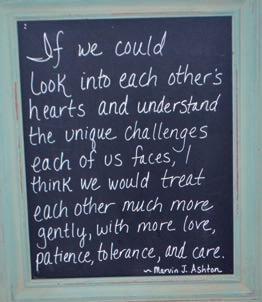 If we could
look into each other's
hearts and understand
the unique challenges
each of us faces, I
think we would treat
each other much more
gently, with more love,
patience, tolerance, and care.
~ Marvin J. Ashton